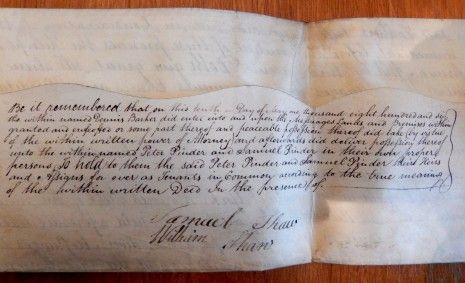 Be it remembered that on this tenth Day of May one thousand eight hundred and six
the within named Dennis Barker did enter into and upon the Messuages Lands and Premises within
granted and enfeoffed or some part thereof and peaceable possession thereof did take by virtue
of the within written power of Attorney and afterwards did deliver possession thereof
unto the within named Peter Pinder and Samuel Pinder in their own proper
persons, To hold to them the said Peter Pinder and Samuel Pinder their Heirs
and Assigns for ever as Tenants in Common according to the true meaning
of the within written Deed In the presence of.
Samuel Shaw
William Shaw